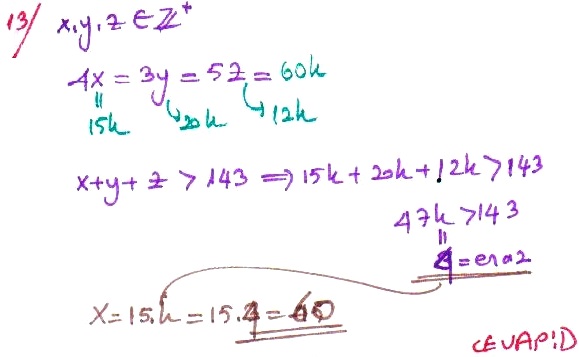 13/ x,y,z ∈ Z⁺
4x = 3y = 5z = 60k
15k 20k 12k
x+y+z > 143 ⇒ 15k + 20k + 12k > 143
47k > 143
4 = en az
x = 15.k = 15.4 = 60
CEVAP: D